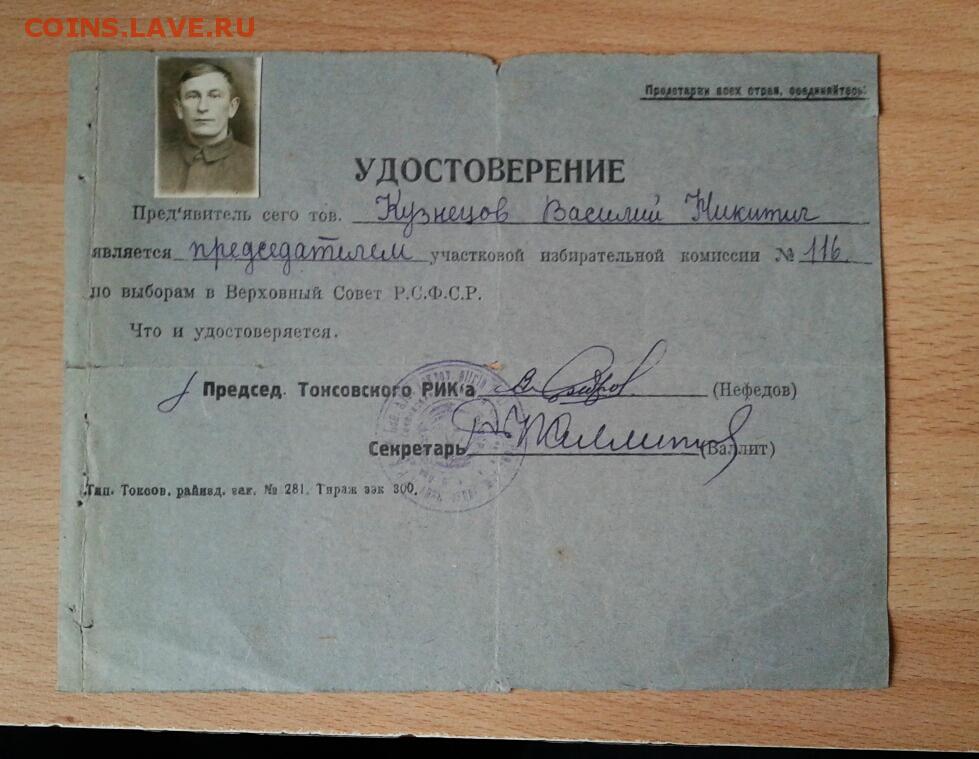 COINS.LAVE.RU
Пролетарии всех стран, соединяйтесь!
УДОСТОВЕРЕНИЕ
Пред'явитель сего тов. Кузнецов Василий Никитич
является председателем участковой избирательной комиссии № 116.
по выборам в Верховный Совет Р.С.Ф.С.Р.
Что и удостоверяется.
Председ. Токсовского РИК'а (Нефедов)
Секретарь (Валлит)
Тип. Токсов. райизд. зак. № 281. Тираж экз 300.